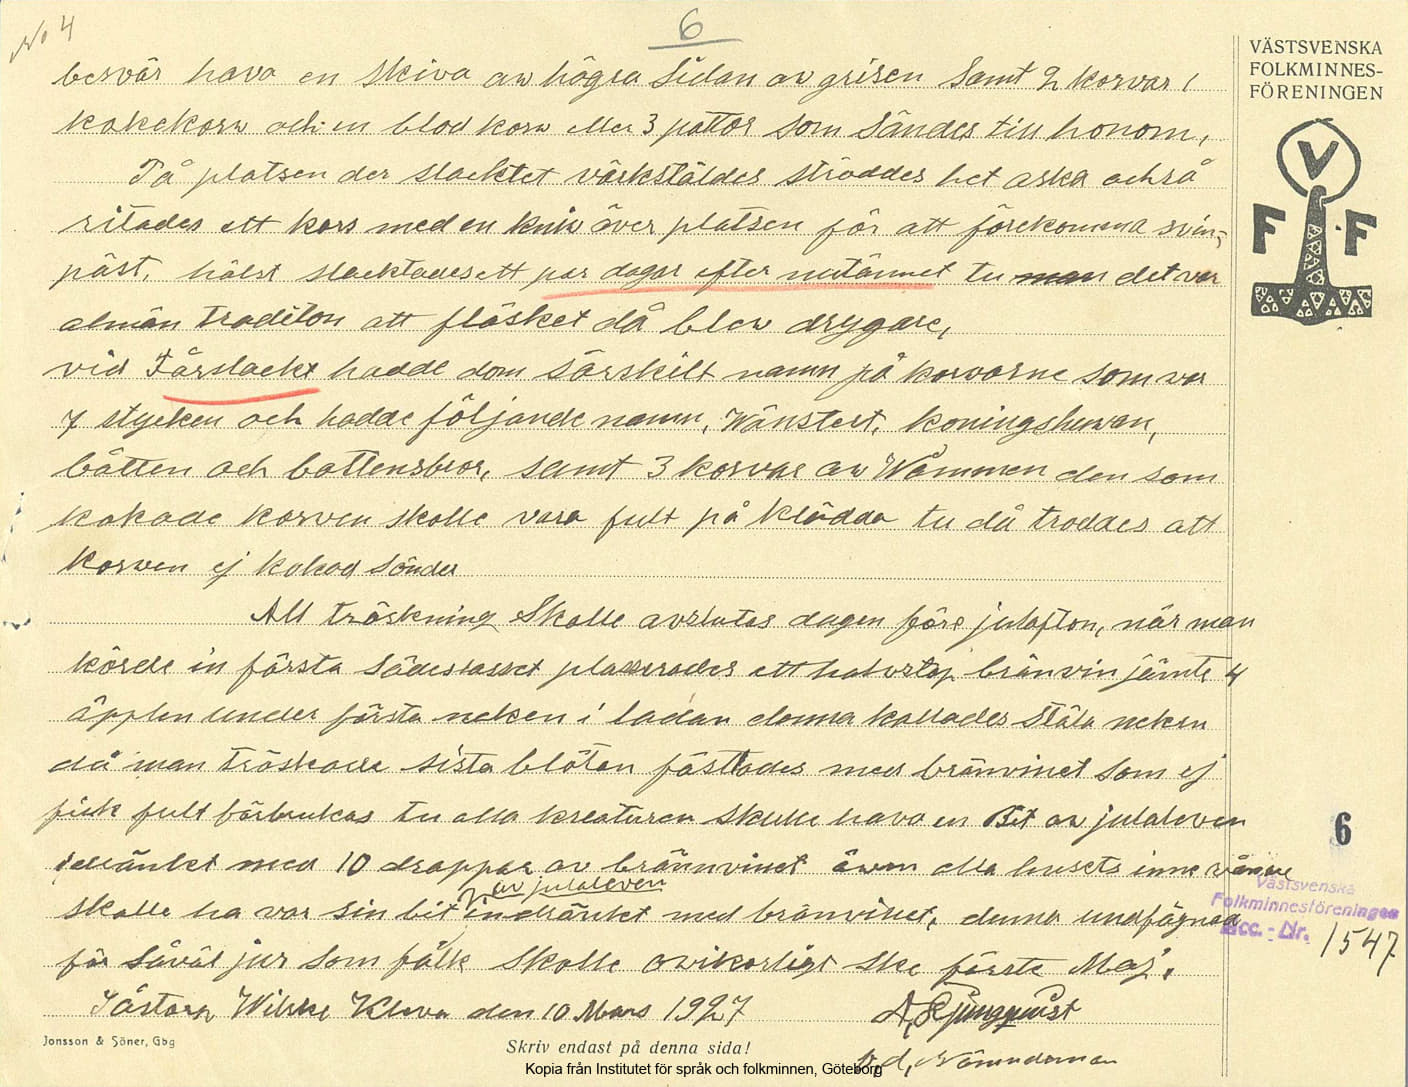 No 4
6
besvär hava en skiva aw högra Sidan av grisen Samt 2 korvar 1
kokekorv och en blod korw eller 3 pattor som Sändes till honom,
På platsen der slacktet värkstäldes ströddes het aska och så
ritades ett kors med en kniv över platsen för att förekomma svin-
päst, hälst slacktades ett par dagar efter nutännet tu man det var
almän traditon att fläsket då blew drygare,
vid Fårslackt hadde dom särskilt namn på korvarne som var
7 stycken och hadde följande namn, Wänstert, koningshuvan,
båtten och battensbror, samt 3 korvar aw Wåmmen den som
kokade korven skolle vara fult på klädda tu då troddes att
korwen ej kokad sönder
All tröskning Skolle avslutas dagen före julafton, när man
körde in första Sädeslasset plaserades ett halvstop bränvin jämte 4
äpplen under första neken i ladan denna kallades Ståla neken
då man tröskade sista blöten fästades med bränvinet som ej
fick fult förbrukas tu alla kreaturen skulle hava en Bit av julaleven
idränkt med 10 droppar av brännvinet även alla husets inne vånare
av julaleven
skolle ha var sin bit indränkt med bränvinet, denna undfägnad
för Såväl jur som fålk skolle ovikorligt ske förste Maj.
Tåstorp Wilske Kleva den 10 Mars 1927
A, Ljungqwist
f, d, Nämndeman
VÄSTSVENSKA
FOLKMINNES-
FÖRENINGEN
V
F F
6
Västsvenska
Folkminnesföreningen
Acc. - Nr. 1547
Jonsson & Söner, Gbg
Skriv endast på denna sida!
Kopia från Institutet för språk och folkminnen, Göteborg